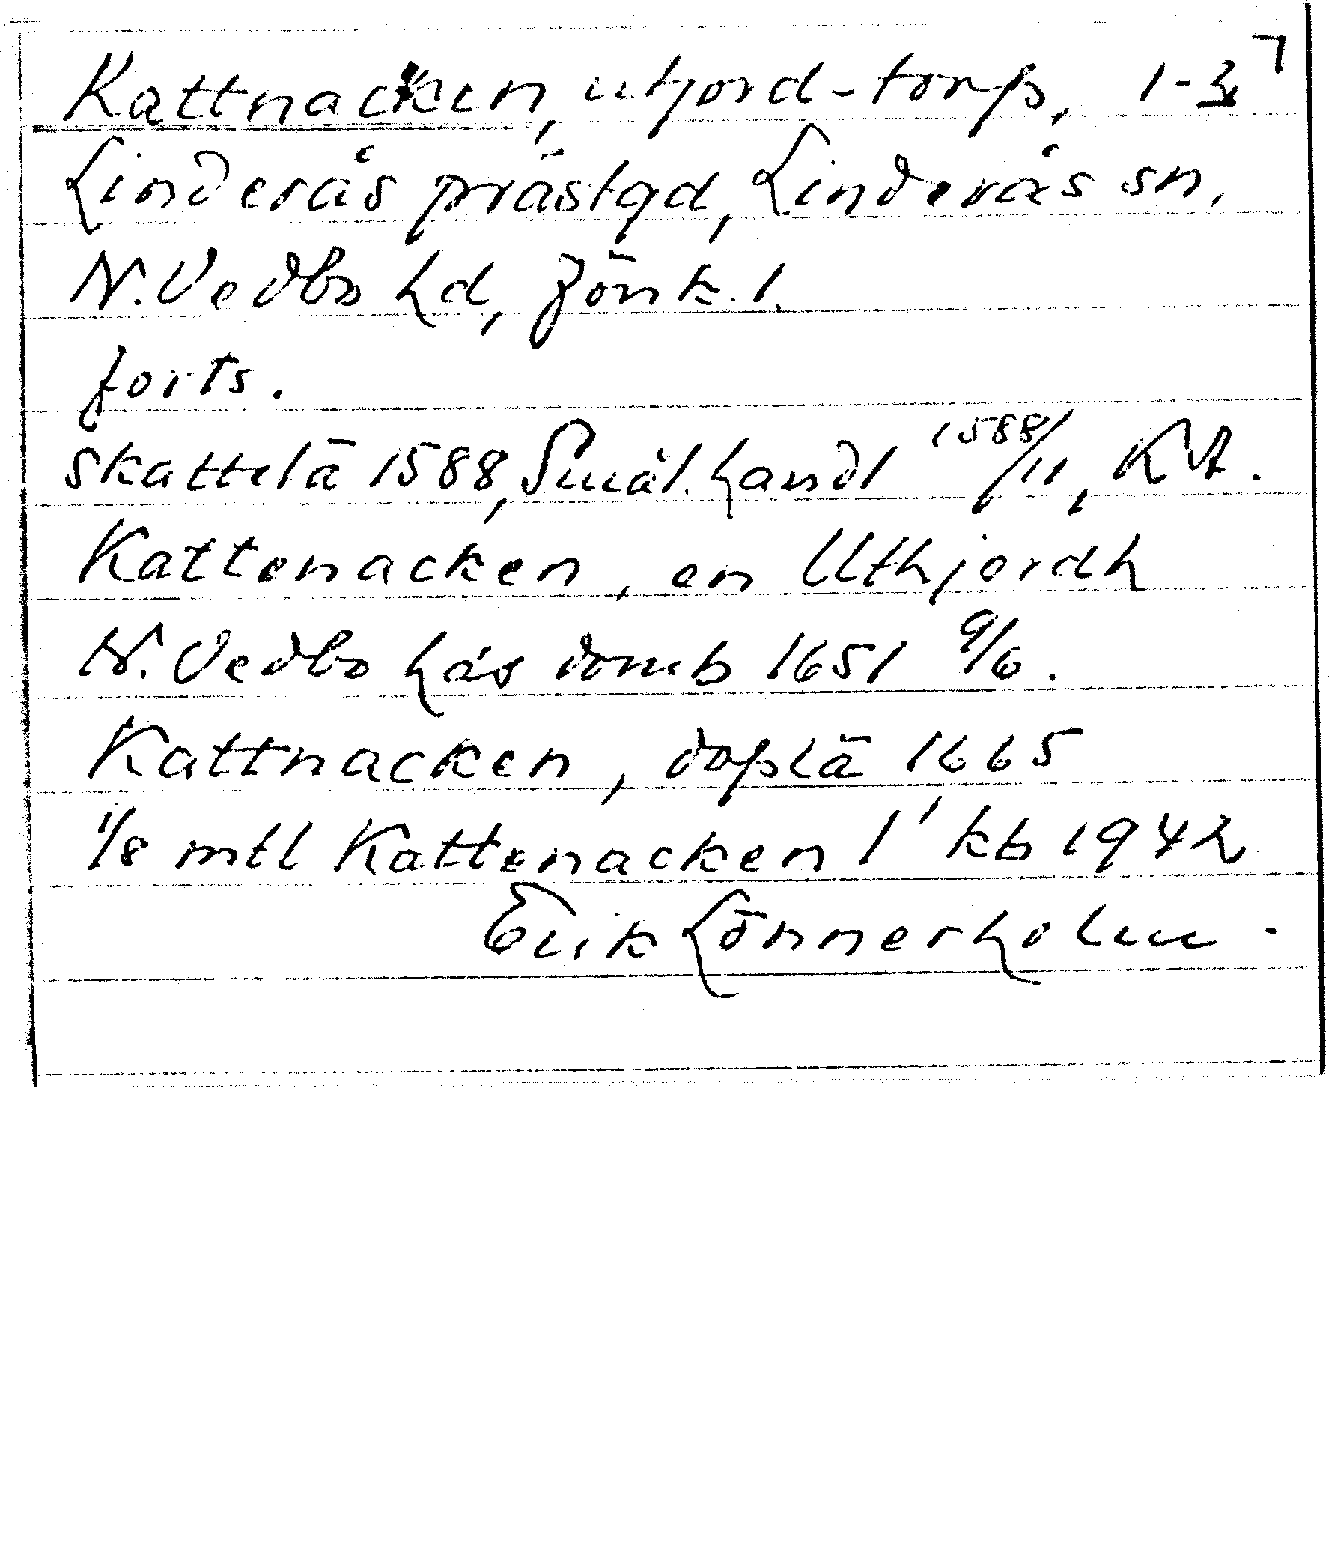 Kattnacken, utjord-torp, 1-3
Linderås prästgd, Linderås sn,
N. Vedbo hd, Jönk. l.
forts.
skattelä 1588, Smål. handl 1588/11, KA.
Kattenacken, en Uthjordh
N. Vedbo häs domb 1651 9/6.
Kattnacken, doplä 1665
1/8 mtl Kattenacken 1' kb 1942
Erik Lönnerholm.